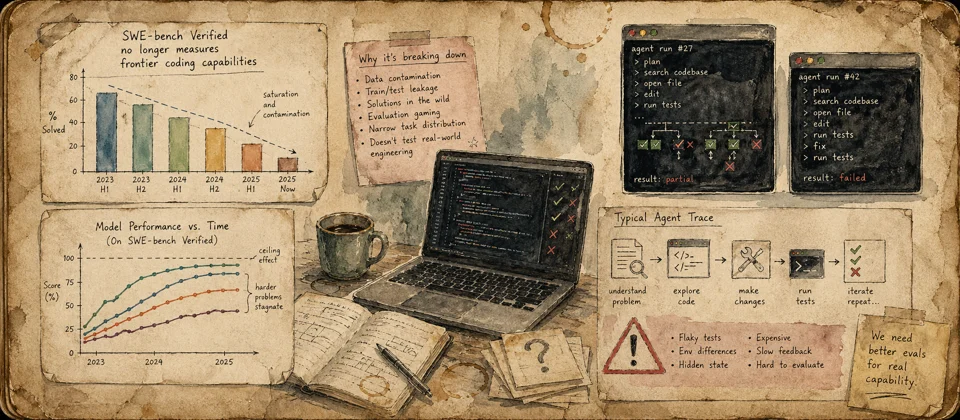 SWE-bench Verified
no longer measures
frontier coding capabilities
80
60
40
20
0
%
Solved
Saturation
and
contamination
2023
H1
2023
H2
2024
H1
2024
H2
2025
H1
2025
Now
Why it's breaking down
• Data contamination
• Train/test leakage
• Solutions in the wild
• Evaluation gaming
• Narrow task distribution
• Doesn't test real-world
engineering
agent run #27
> plan
> search codebase
> open file
> edit
> run tests
...
result: partial
agent run #42
> plan
> search codebase
> open file
> edit
> run tests
> fix
> run tests
result: failed
Model Performance vs. Time
(On SWE-bench Verified)
100
75
50
25
0
Score
(%)
ceiling
effect
harder
problems
stagnate
2023
2024
2025
?
Typical Agent Trace
</>-
understand
problem
explore
code
make
changes
run
tests
iterate
repeat...
!
• Flaky tests
• Env differences
• Hidden state
• Expensive
• Slow feedback
• Hard to evaluate
We need
better evals
for real
capability.